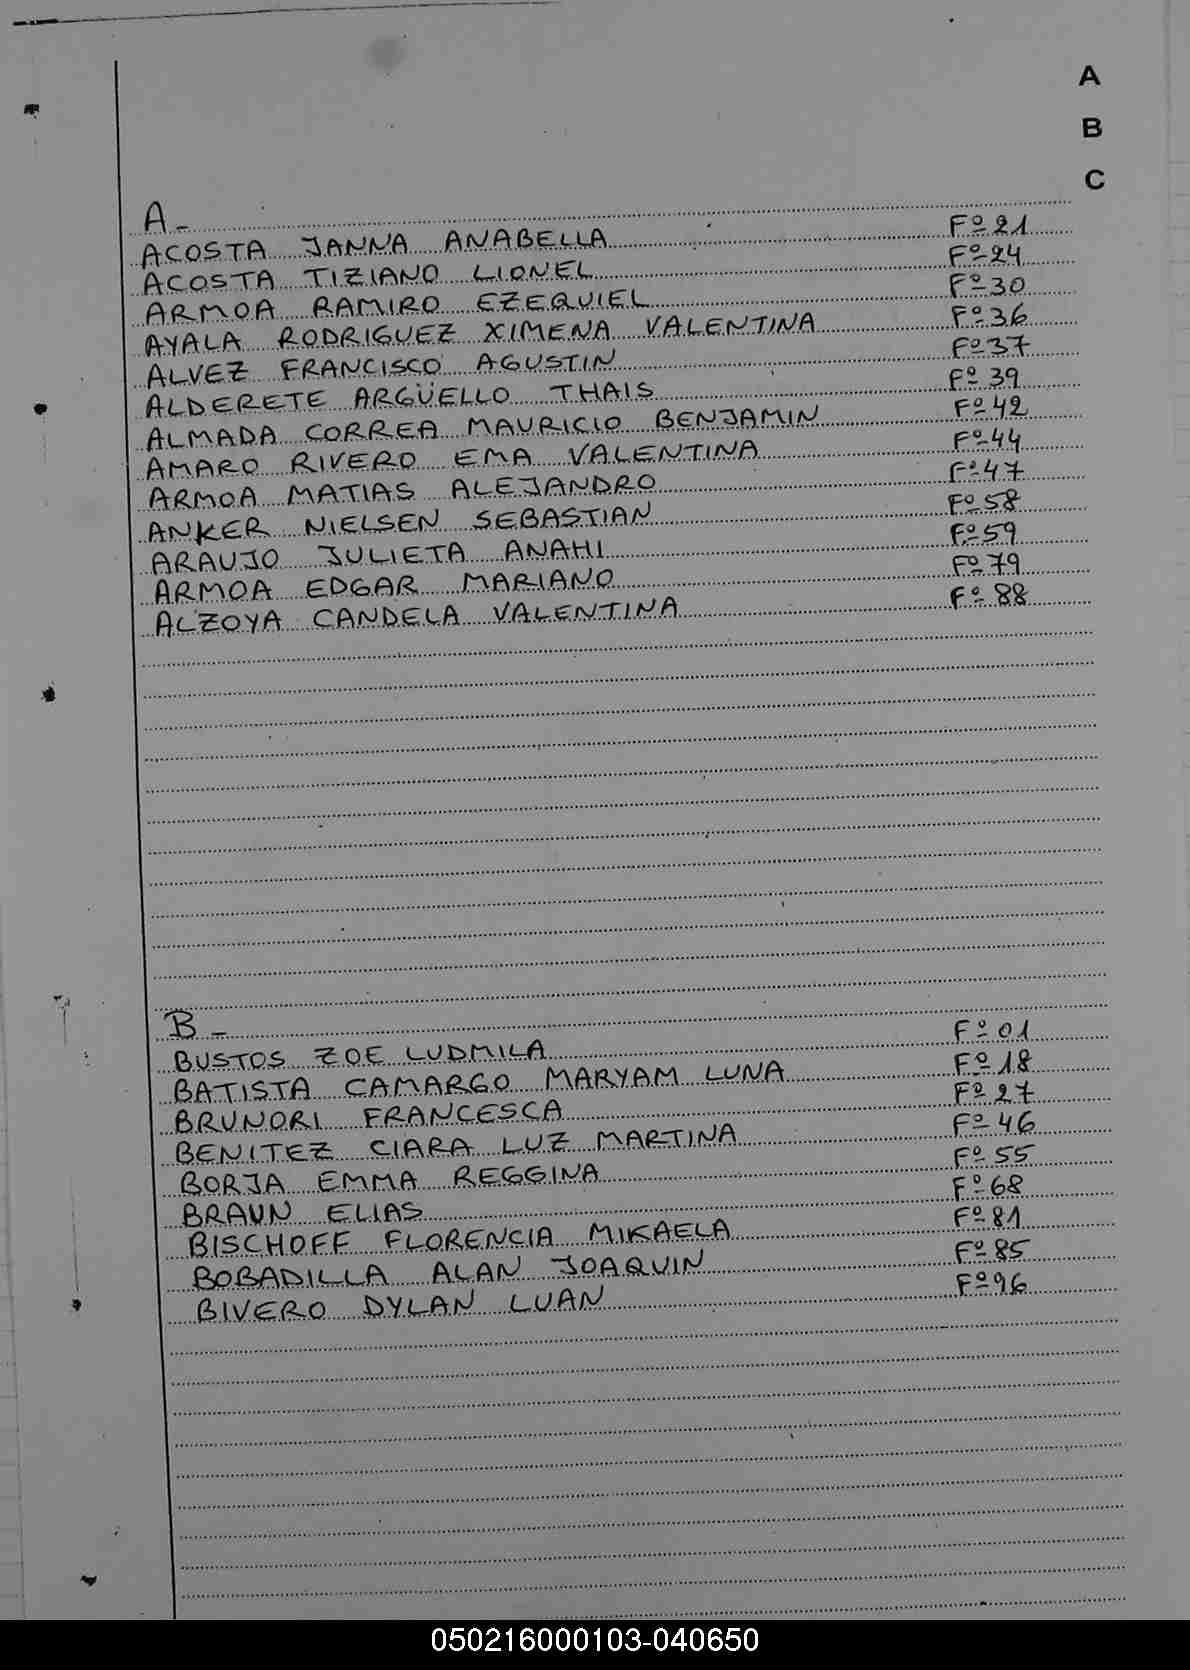 A
B
C
A-
ACOSTA JANNA ANABELLA Fº 21
ACOSTA TIZIANO LIONEL Fº 24
ARMOA RAMIRO EZEQUIEL Fº 30
AYALA RODRIGUEZ XIMENA VALENTINA Fº 36
ALVEZ FRANCISCO AGUSTIN Fº 37
ALDERETE ARGÜELLO THAIS Fº 39
ALMADA CORREA MAURICIO BENJAMIN Fº 42
AMARO RIVERO EMA VALENTINA Fº 44
ARMOA MATIAS ALEJANDRO Fº 47
ANKER NIELSEN SEBASTIAN Fº 58
ARAUJO JULIETA ANAHI Fº 59
ARMOA EDGAR MARIANO Fº 79
ALZOYA CANDELA VALENTINA Fº 88
B-
BUSTOS ZOE LUDMILA Fº 01
BATISTA CAMARGO MARYAM LUNA Fº 18
BRUNORI FRANCESCA Fº 27
BENITEZ CIARA LUZ MARTINA Fº 46
BORJA EMMA REGGINA Fº 55
BRAUN ELIAS Fº 68
BISCHOFF FLORENCIA MIKAELA Fº 81
BOBADILLA ALAN JOAQUIN Fº 85
BIVERO DYLAN LUAN Fº 96
050216000103-040650